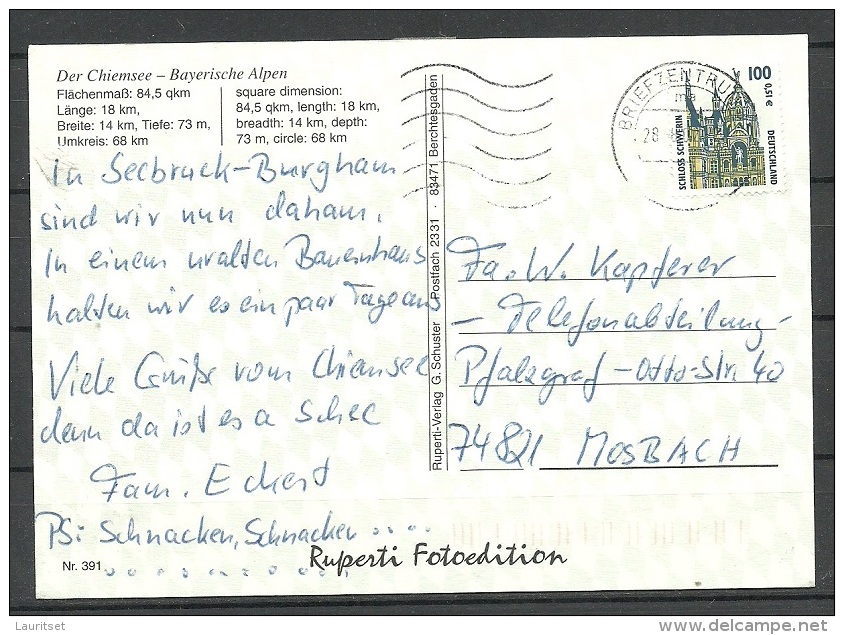 Der Chiemsee – Bayerische Alpen
Flächenmaß: 84,5 qkm
Länge: 18 km,
Breite: 14 km, Tiefe: 73 m,
Umkreis: 68 km
square dimension:
84,5 qkm, length: 18 km,
breadth: 14 km, depth:
73 m, circle: 68 km
In Seebruck-Burgham
sind wir nun daham.
In einem uralten Bauernhaus
halten wir es ein paar Tage aus
Viele Grüße vom Chiemsee
denn da ist es a Schee
Fam. Eckert
PS: Schnacken, Schnacken ....
Nr. 391
Ruperti Fotoedition
Ruperti-Verlag G. Schuster · Postfach 2331 · 83471 Berchtesgaden
BRIEFZENTRUM
28
100
0,51 €
SCHLOSS SCHWERIN
DEUTSCHLAND
Fa. W. Kapferer
- Telefonabteilung -
Pfalzgraf-Otto-Str. 40
74821 MOSBACH
Lauritset
delcampe.net